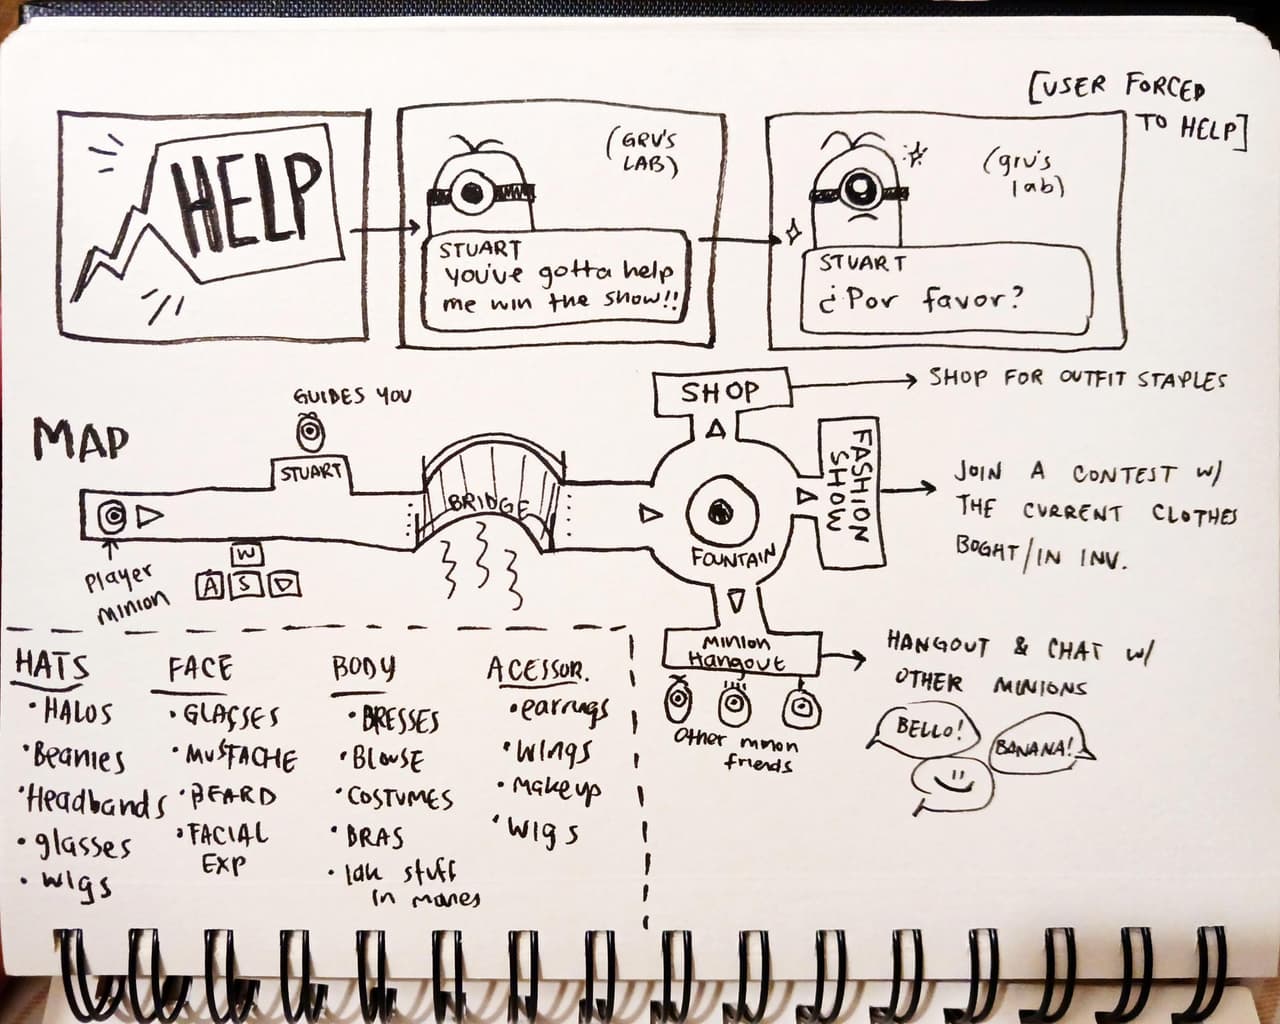 [USER FORCED
TO HELP]
HELP
(GRU'S
LAB)
STUART
you've gotta help
me win the show!!
(gru's
lab)
STUART
¿Por favor?
MAP
GUIDES YOU
STUART
BRIDGE
Player
minion
W
A S D
SHOP
SHOP FOR OUTFIT STAPLES
FOUNTAIN
FASHION
SHOW
JOIN A CONTEST W/
THE CURRENT CLOTHES
BOGHT/IN INV.
Minion
Hangout
HANGOUT & CHAT W/
OTHER MINIONS
Other minon
friends
BELLO!
BANANA!
HATS
• HALOS
• Beanies
• Headbands
• glasses
• wigs
FACE
• GLASSES
• MUSTACHE
• BEARD
• FACIAL
EXP
BODY
• DRESSES
• BLOUSE
• COSTUMES
• BRAS
• Idk stuff
in
ACESSOR.
• wings
• makeup
• wigs